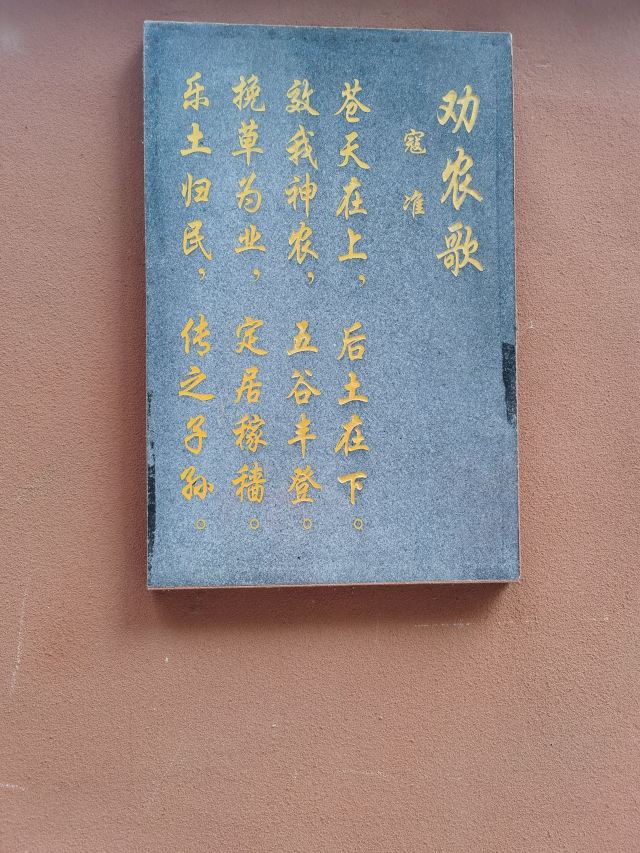 劝农歌
寇准
苍天在上，后土在下。
效我神农，五谷丰登。
挽草为业，定居稼穑。
乐土归民，传之子孙。